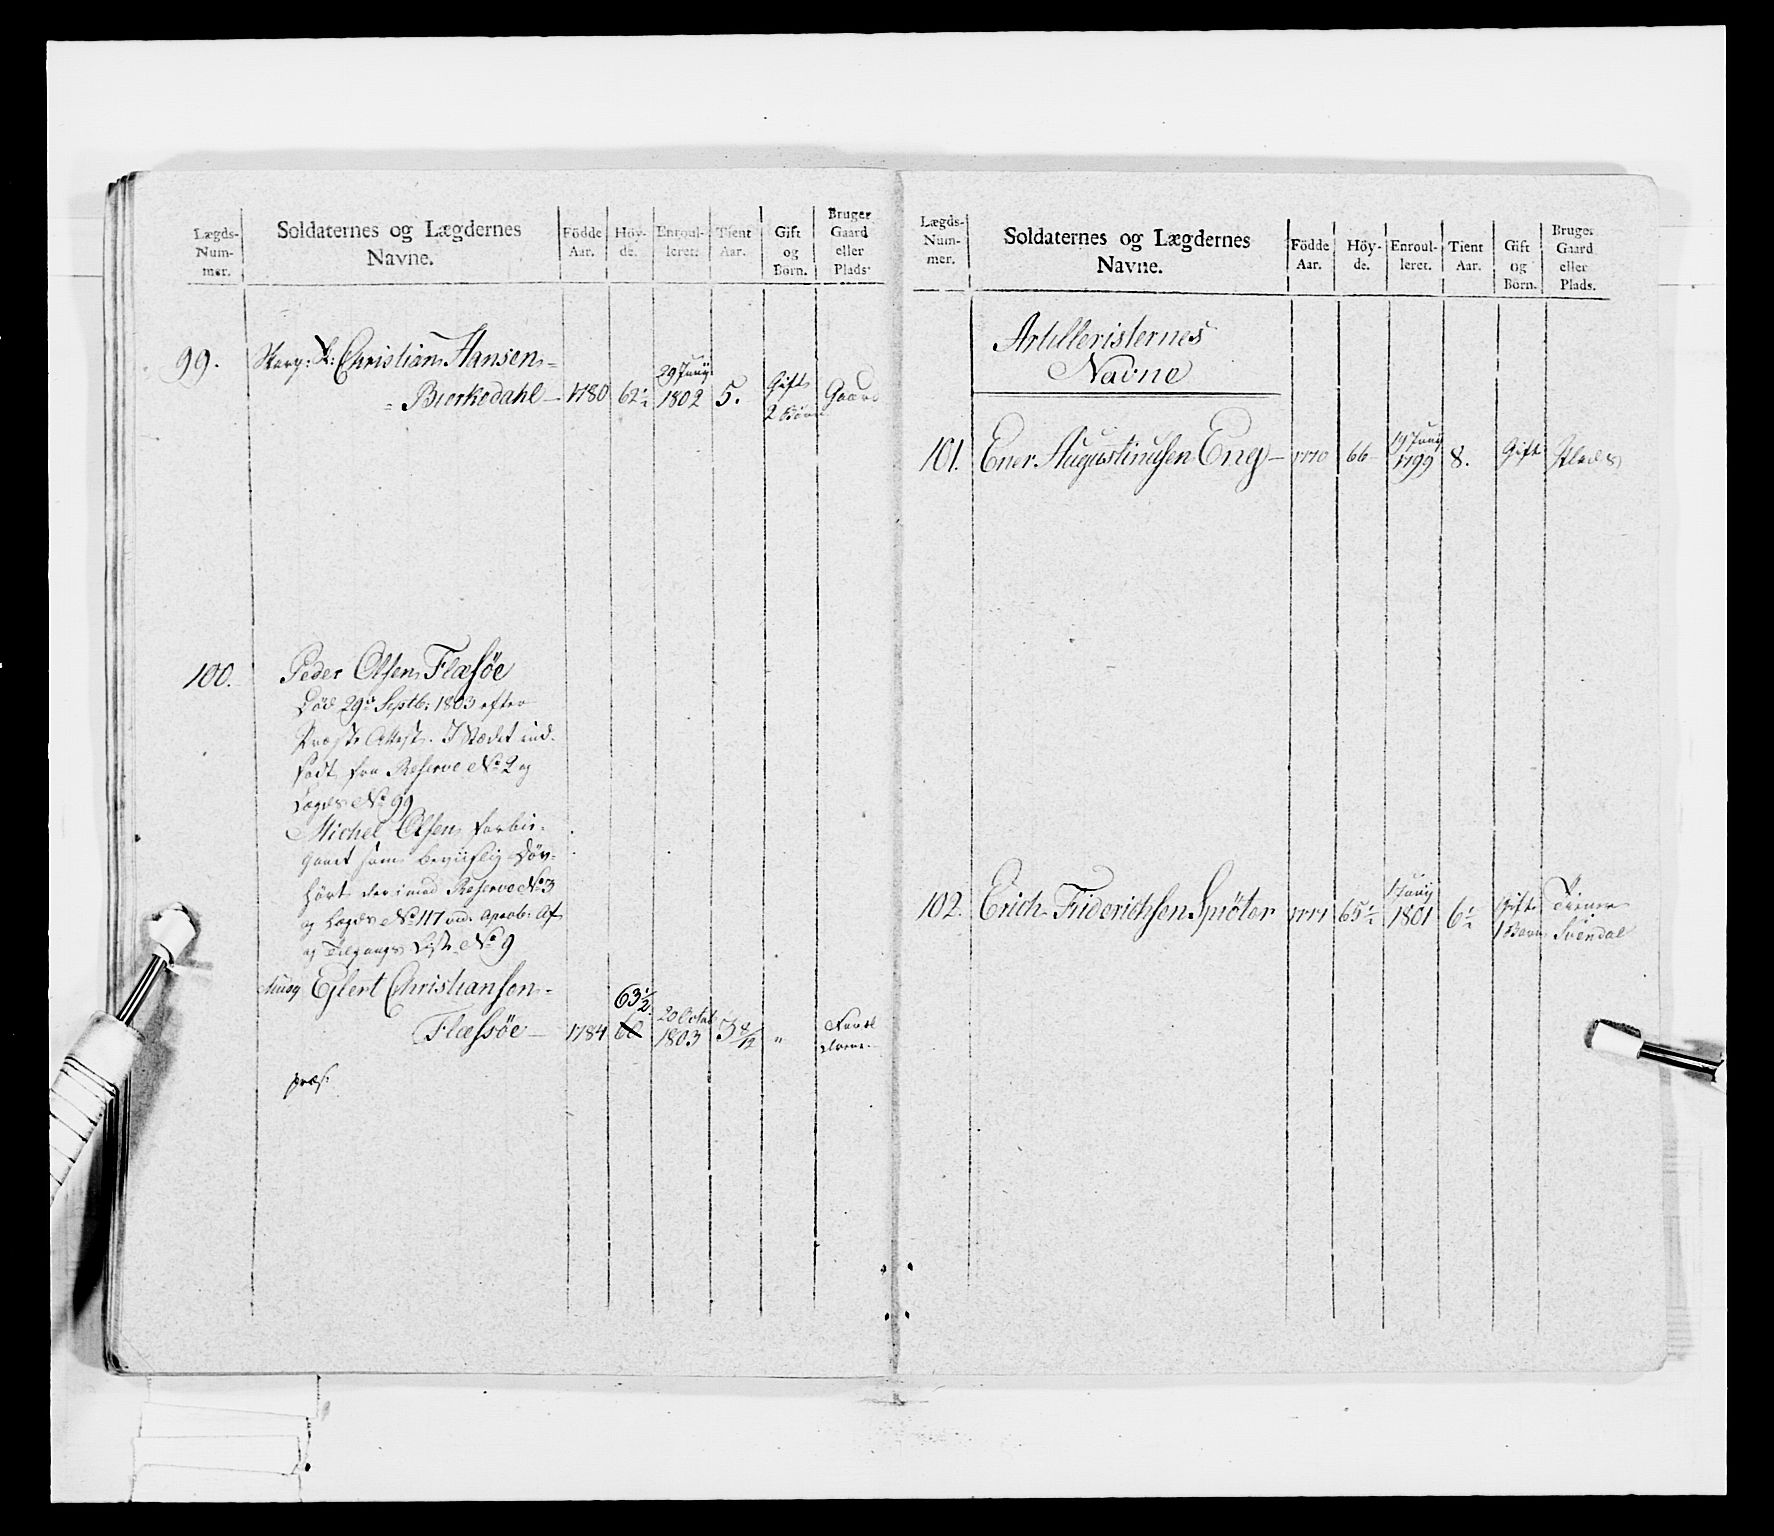 Lægds-
Num-
mer.
Soldaternes og Lægdernes
Navne.
Födde
Aar.
Höy-
de.
Enroul-
leret.
Tient
Aar.
Gift
og
Børn.
Bruger
Gaard
eller
Plads.
99.
Christian Hansen
Bierkedahl 1780 62½ 29 Junij 1802 5. Gift 2 Børn Gaard
100.
Peder Olsen Flæsöe
Död 29de Septb: 1803 efter
Præste Attest. I Stædet ind-
sadt fra Reserve No 2 og
Lægds No 99
Michel Olsen forbi-
gaaet som beviislig Döv-
hört derimod Reserve No 3
og Lægds No 117 ved Aprob: Af
og Tilgangs Liste No 9
Ejlert Christiansen
Flæsöe 1784 60 63½ 20 Octob 1803 3 4/12 "
præs.
Lægds-
Num-
mer.
Soldaternes og Lægdernes
Navne.
Födde
Aar.
Höy-
de.
Enroul-
leret.
Tient
Aar.
Gift
og
Børn.
Bruger
Gaard
eller
Plads.
Artilleristernes
Navne
101. Ener Augustinusen Eng 1770 66 19 Junij 1799 8. Gift Plads
102. Erich Friderichsen Spiöter 1771 65½ 1 Junij 1801 6½ Gift 1 Barn Tiener Svendal